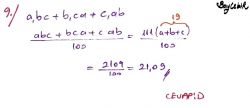 9.) a,bc + b,ca + c,ab
19
abc + bca + cab / 100 = 111(a+b+c) / 100
= 2109 / 100 = 21,09
CEVAP: D